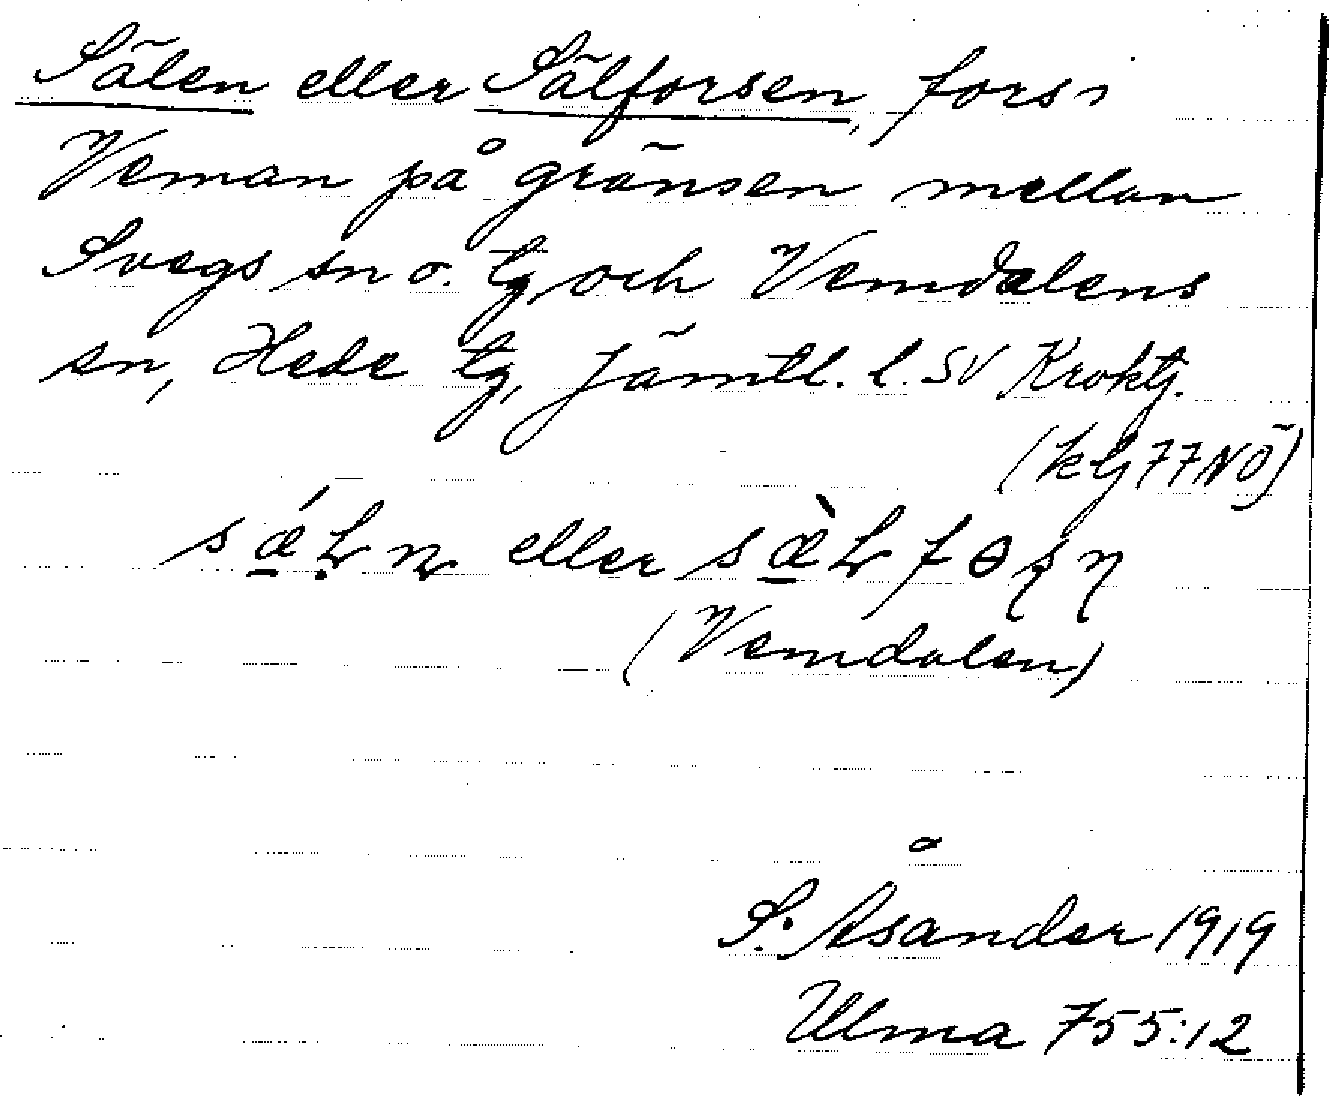 Sälen eller Sälforsen, fors i
Veman på gränsen mellan
Svegs sn o. tg, och Vemdalens
sn, Hede tg, Jämtl. l. SV Kroktj.
(ktj 77NÖ)
eller
(Vemdalen)
S: Åsander 1919
Ulma 755:12